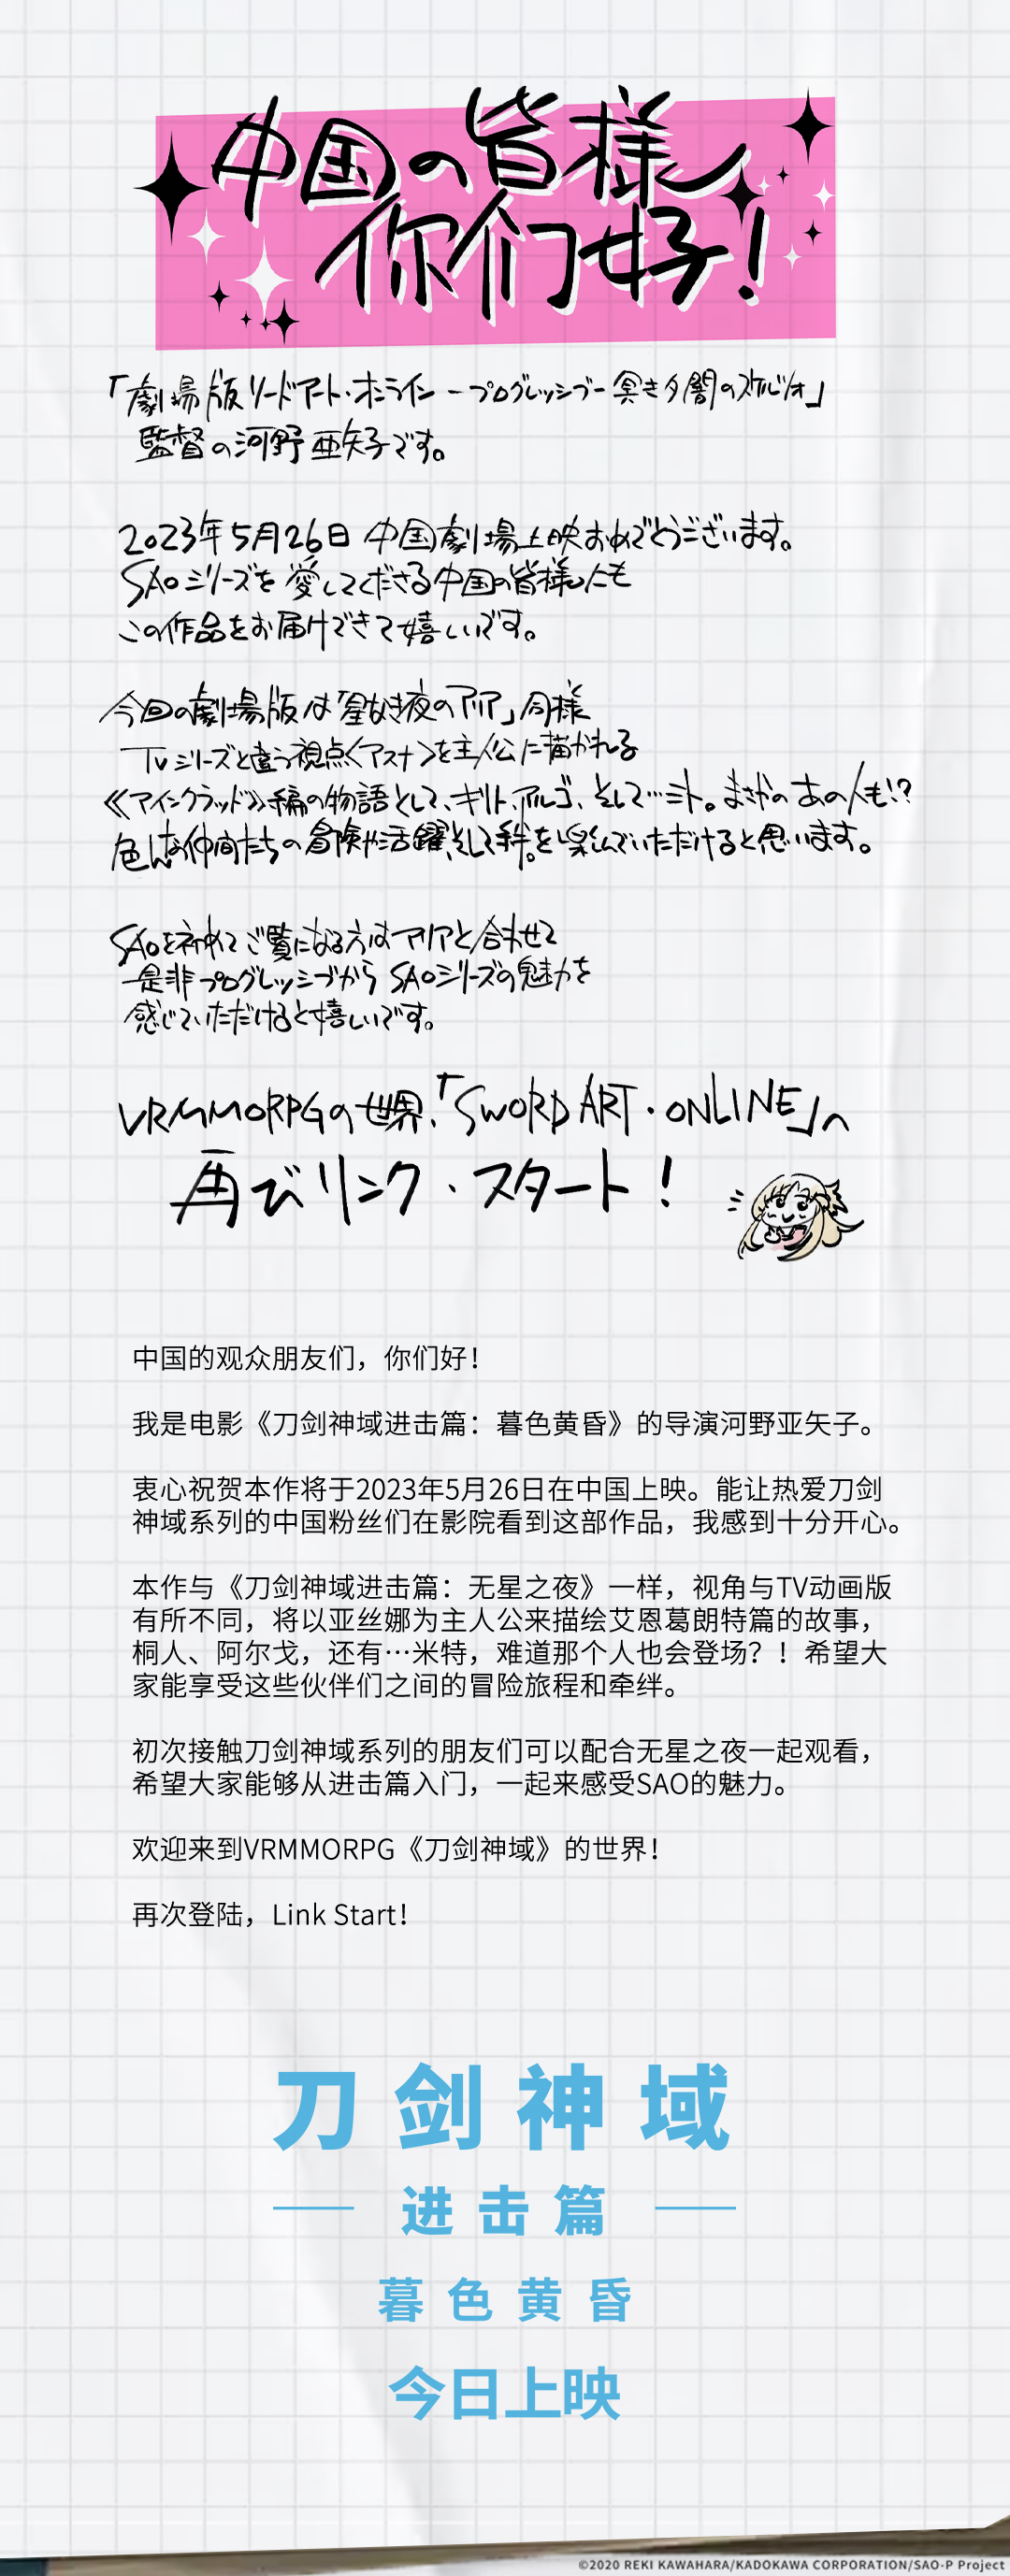 中国の皆様
你们好!
「劇場版 ソードアート・オンライン -プログレッシブ- 冥き夕闇のスケルツォ」
監督の河野亜矢子です。
2023年5月26日 中国劇場上映おめでとうございます。
SAOシリーズを愛してくださる中国の皆様にも
この作品をお届けできて嬉しいです。
今回の劇場版は「星なき夜のアリア」同様
TVシリーズと違う視点〈アスナ〉を主人公に描かれる
《アインクラッド》編の物語として、キリト、アルゴ、そして…ミト。まさかのあの人も!?
色んな仲間たちの冒険や活躍、そして絆。を楽しんでいただけると思います。
SAOを初めてご覧になる方はアリアと合わせて
是非プログレッシブから SAOシリーズの魅力を
感じていただけると嬉しいです。
VRMMORPGの世界、「SWORD ART・ONLINE」へ
再びリンク・スタート!
中国的观众朋友们,你们好!
我是电影《刀剑神域进击篇:暮色黄昏》的导演河野亚矢子。
衷心祝贺本作将于2023年5月26日在中国上映。能让热爱刀剑
神域系列的中国粉丝们在影院看到这部作品,我感到十分开心。
本作与《刀剑神域进击篇:无星之夜》一样,视角与TV动画版
有所不同,将以亚丝娜为主人公来描绘艾恩葛朗特篇的故事,
桐人、阿尔戈,还有…米特,难道那个人也会登场?!希望大
家能享受这些伙伴们之间的冒险旅程和牵绊。
初次接触刀剑神域系列的朋友们可以配合无星之夜一起观看,
希望大家能够从进击篇入门,一起来感受SAO的魅力。
欢迎来到VRMMORPG《刀剑神域》的世界!
再次登陆,Link Start!
刀剑神域
进击篇
暮色黄昏
今日上映
©2020 REKI KAWAHARA/KADOKAWA CORPORATION/SAO-P Project